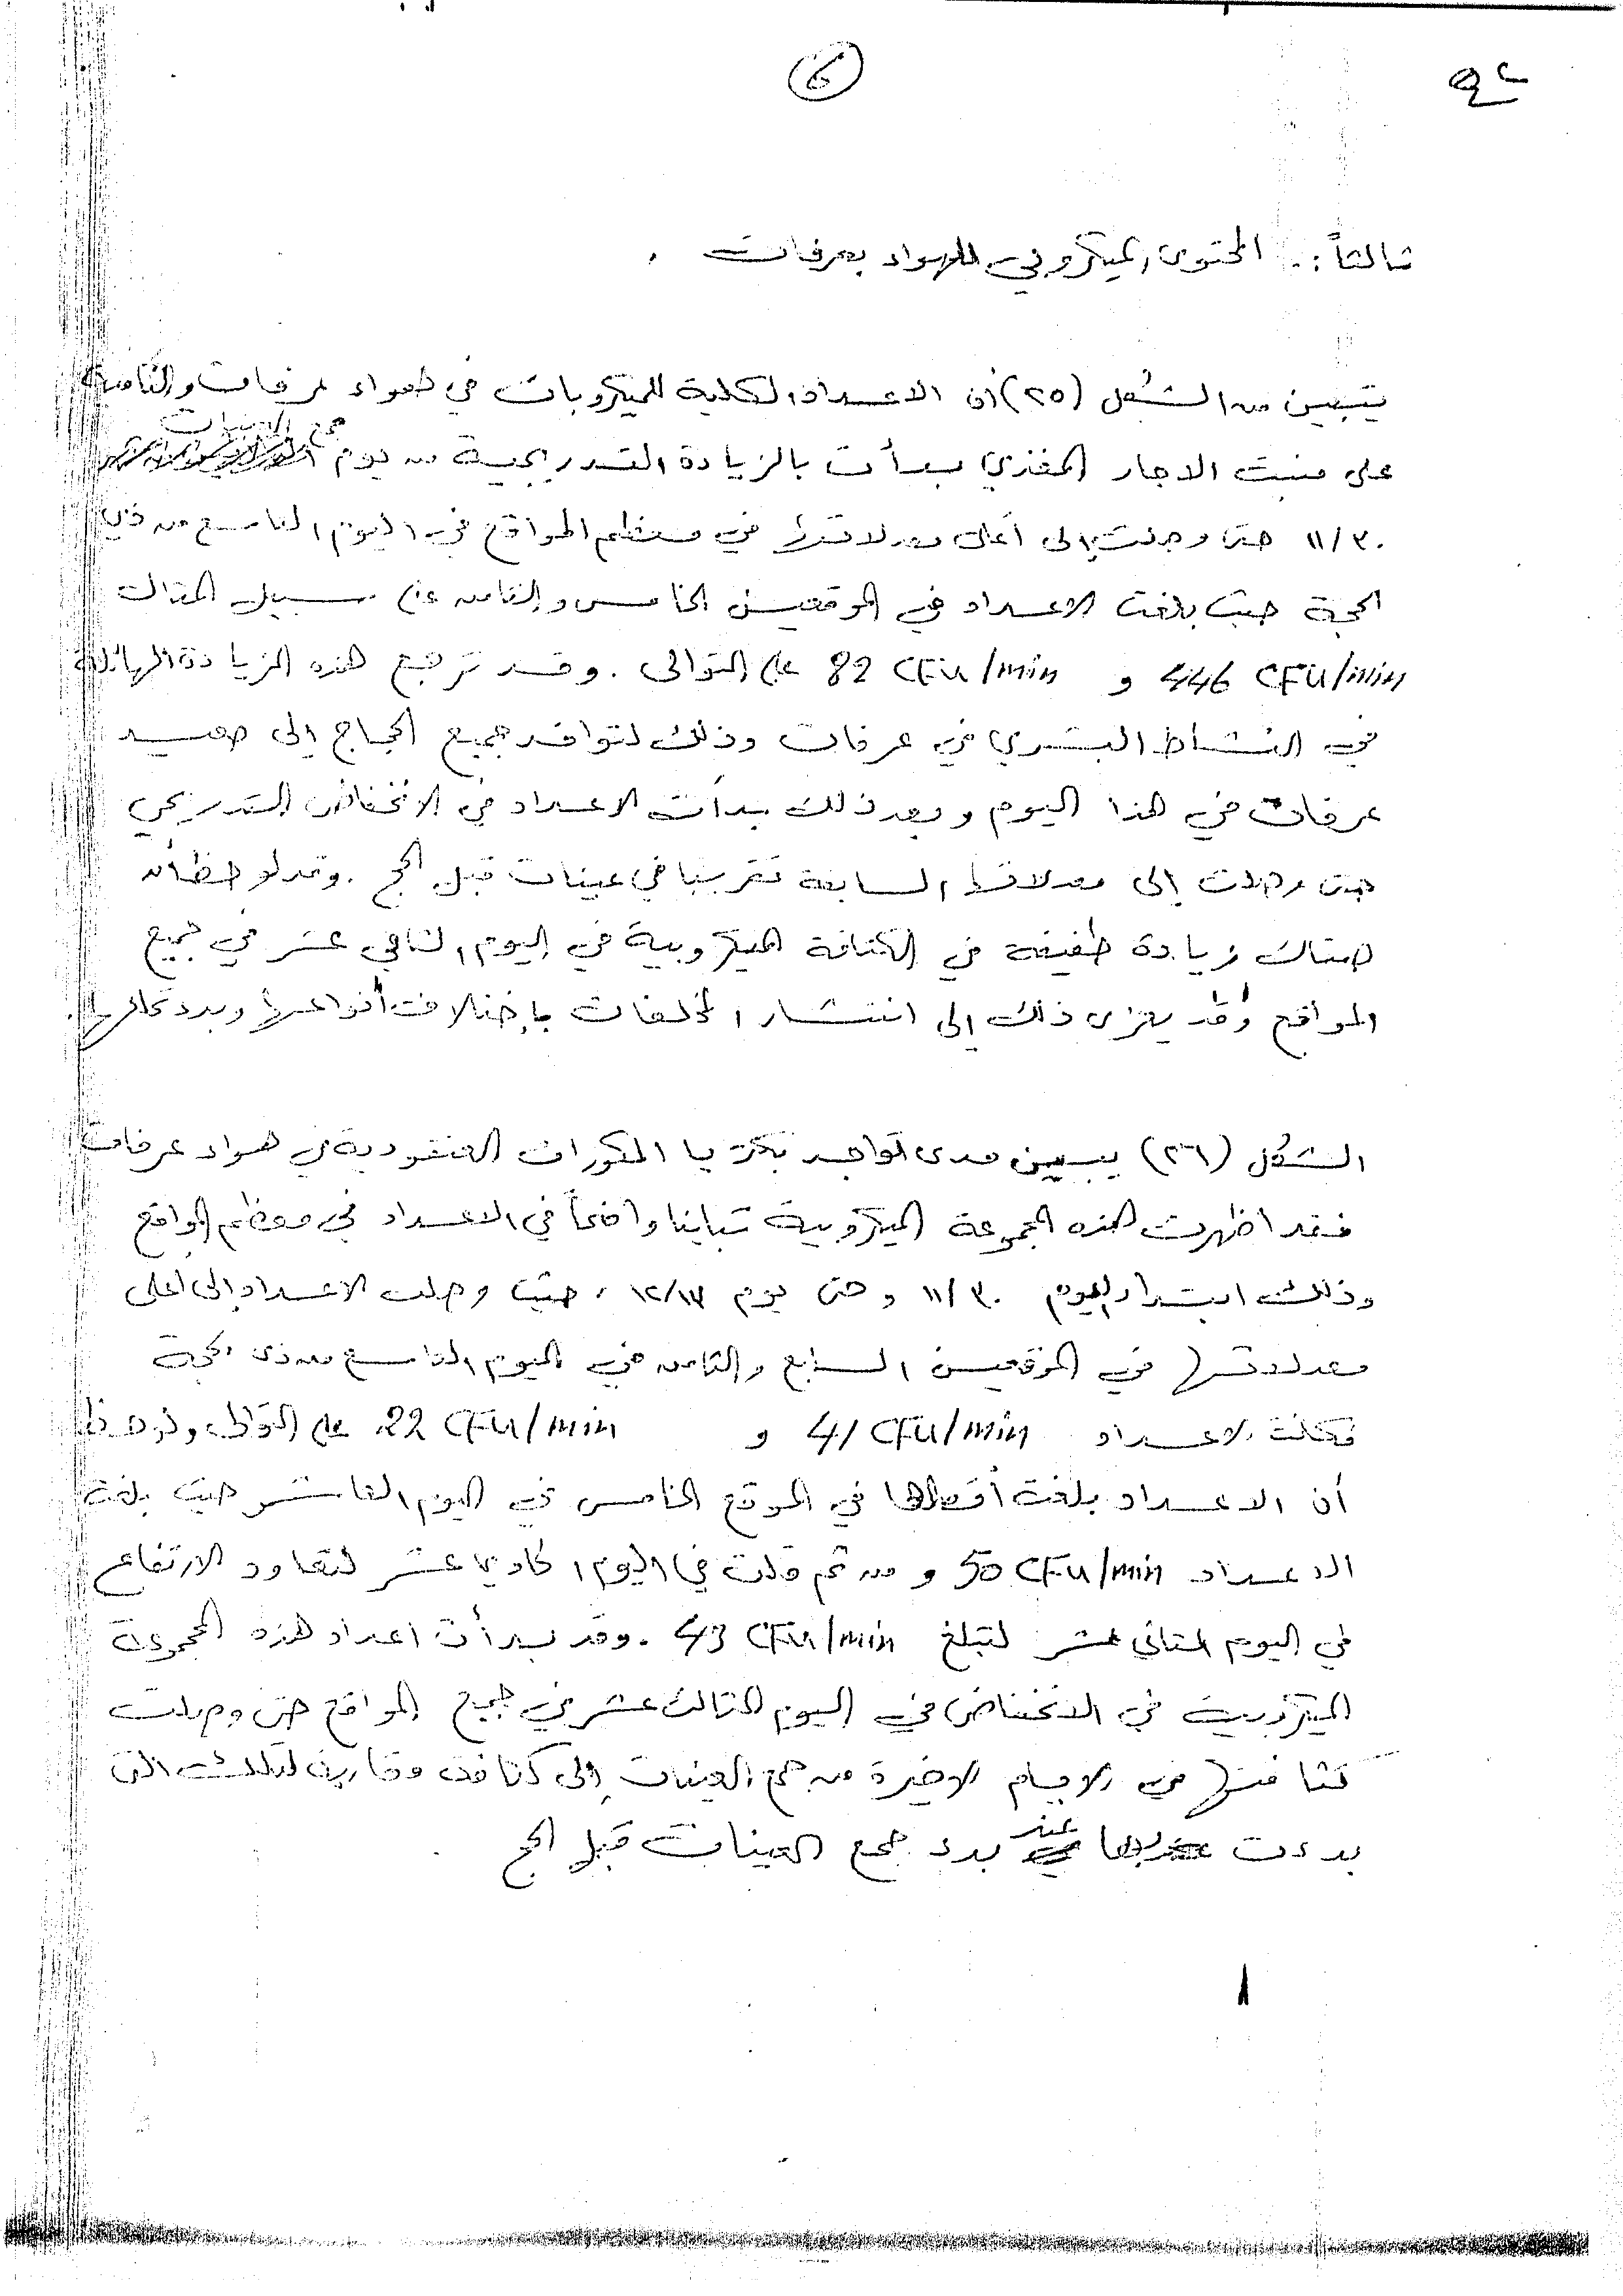 6
ثالثاً : المحتوى الميكروبي للهواء بعرفات .
يتبين من الشكل (٢٥) أن الاعداد الكلية للميكروبات في هواء عرفات والنامية
جمع العينات
على منبت الاجار المغذي بدأت بالزيادة التدريجية من يوم
١١/٣٠ حتى وصلت إلى أعلى معدلاتها في معظم المواقع في اليوم التاسع من ذي
الحجة حيث بلغت الاعداد في الموقعين الخامس والثامن على سبيل المثال
446 CFU/min و 82 CFU/min على التوالى . وقد ترجع هذه الزيادة الهائلة
في النشاط البشري في عرفات وذلك لتوافد جميع الحجاج إلى صعيد
عرفات في هذا اليوم وبعد ذلك بدأت الاعداد في الانخفاض التدريجي
حتى وصلت إلى معدلاتها السابقة تقريبا في عينات قبل الحج . وقد لوحظ أن
هناك زيادة طفيفة في الكثافة الميكروبية في اليوم الثاني عشر في جميع
المواقع وقد يعزى ذلك إلى انتشار المخلفات بإختلاف أنواعها وبدء تحللها .
الشكل (٢٦) يبين مدى تواجد بكتريا المكورات العنقودية في هواء عرفات
فقد اظهرت هذه المجموعة الميكروبية تباينا واضحاً في الاعداد في معظم المواقع
وذلك ابتداء اليوم ١١/٣٠ وحتى يوم ١٢/١٣ ، حيث وصلت الاعداد إلى أعلى
معدلاتها في الموقعين السابع والثامن في اليوم التاسع من ذى الحجة
فكانت الاعداد 41 CFU/min و 22 CFU/min على التوالى ولوحظ
أن الاعداد بلغت أقصاها في الموقع الخامس في اليوم العاشر حيث بلغت
الاعداد 50 CFU/min ومن ثم قلت في اليوم الحادي عشر لتعاود الارتفاع
في اليوم الثاني عشر لتبلغ 43 CFU/min . وقد بدأت اعداد هذه المجموعة
الميكروبية في الانخفاض في اليوم الثالث عشر في جميع المواقع حتى وصلت
كثافتها في الايام الاخيرة من جمع العينات إلى كثافة مقاربة لتلك التى
بدءت بها عند بدء جمع العينات قبل الحج